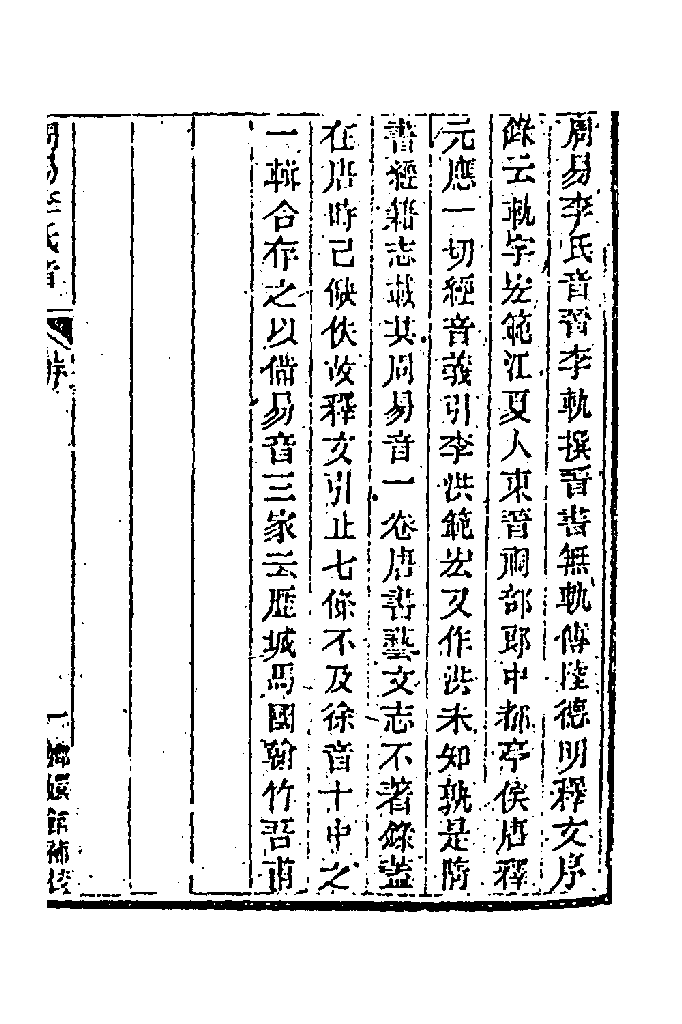 周易李氏音晉李軌撰晉書無軌傳陸德明釋文序
錄云軌字宏範江夏人東晉祠部郎中都亭侯唐釋
元應一切經音義引李洪範宏又作洪未知孰是隋
書經籍志載其周易音一卷唐書藝文志不著錄蓋
在唐時已缺佚故釋文引止七條不及徐音十中之
一輯合存之以備易音三家云歷城馬國翰竹吾甫
周易李氏音
序
一
嫏嬛館補校